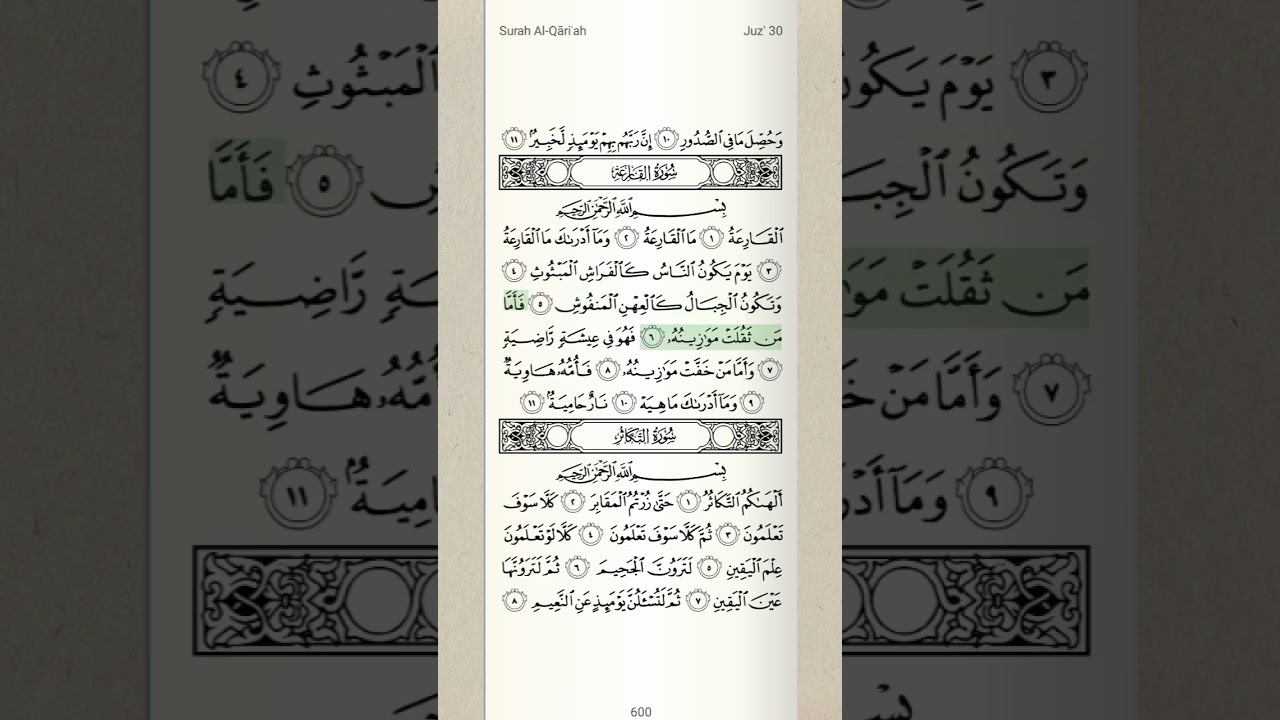 Surah Al-Qāri'ah
Juz' 30
وَحُصِّلَ مَا فِي ٱلصُّدُورِ ١٠ إِنَّ رَبَّهُم بِهِمْ يَوْمَئِذٍ لَّخَبِيرٌۢ ١١
سُورَةُ القَارِعَةِ
بِسْمِ ٱللَّهِ ٱلرَّحْمَٰنِ ٱلرَّحِيمِ
ٱلْقَارِعَةُ ١ مَا ٱلْقَارِعَةُ ٢ وَمَآ أَدْرَىٰكَ مَا ٱلْقَارِعَةُ
٣ يَوْمَ يَكُونُ ٱلنَّاسُ كَٱلْفَرَاشِ ٱلْمَبْثُوثِ ٤
وَتَكُونُ ٱلْجِبَالُ كَٱلْعِهْنِ ٱلْمَنفُوشِ ٥ فَأَمَّا
مَن ثَقُلَتْ مَوَٰزِينُهُۥ ٦ فَهُوَ فِي عِيشَةٍ رَّاضِيَةٍ
٧ وَأَمَّا مَنْ خَفَّتْ مَوَٰزِينُهُۥ ٨ فَأُمُّهُۥ هَاوِيَةٌ
٩ وَمَآ أَدْرَىٰكَ مَا هِيَهْ ١٠ نَارٌ حَامِيَةٌۢ ١١
سُورَةُ التَّكَاثُرِ
بِسْمِ ٱللَّهِ ٱلرَّحْمَٰنِ ٱلرَّحِيمِ
أَلْهَىٰكُمُ ٱلتَّكَاثُرُ ١ حَتَّىٰ زُرْتُمُ ٱلْمَقَابِرَ ٢ كَلَّا سَوْفَ
تَعْلَمُونَ ٣ ثُمَّ كَلَّا سَوْفَ تَعْلَمُونَ ٤ كَلَّا لَوْ تَعْلَمُونَ
عِلْمَ ٱلْيَقِينِ ٥ لَتَرَوُنَّ ٱلْجَحِيمَ ٦ ثُمَّ لَتَرَوُنَّهَا
عَيْنَ ٱلْيَقِينِ ٧ ثُمَّ لَتُسْـَٔلُنَّ يَوْمَئِذٍ عَنِ ٱلنَّعِيمِ ٨
600